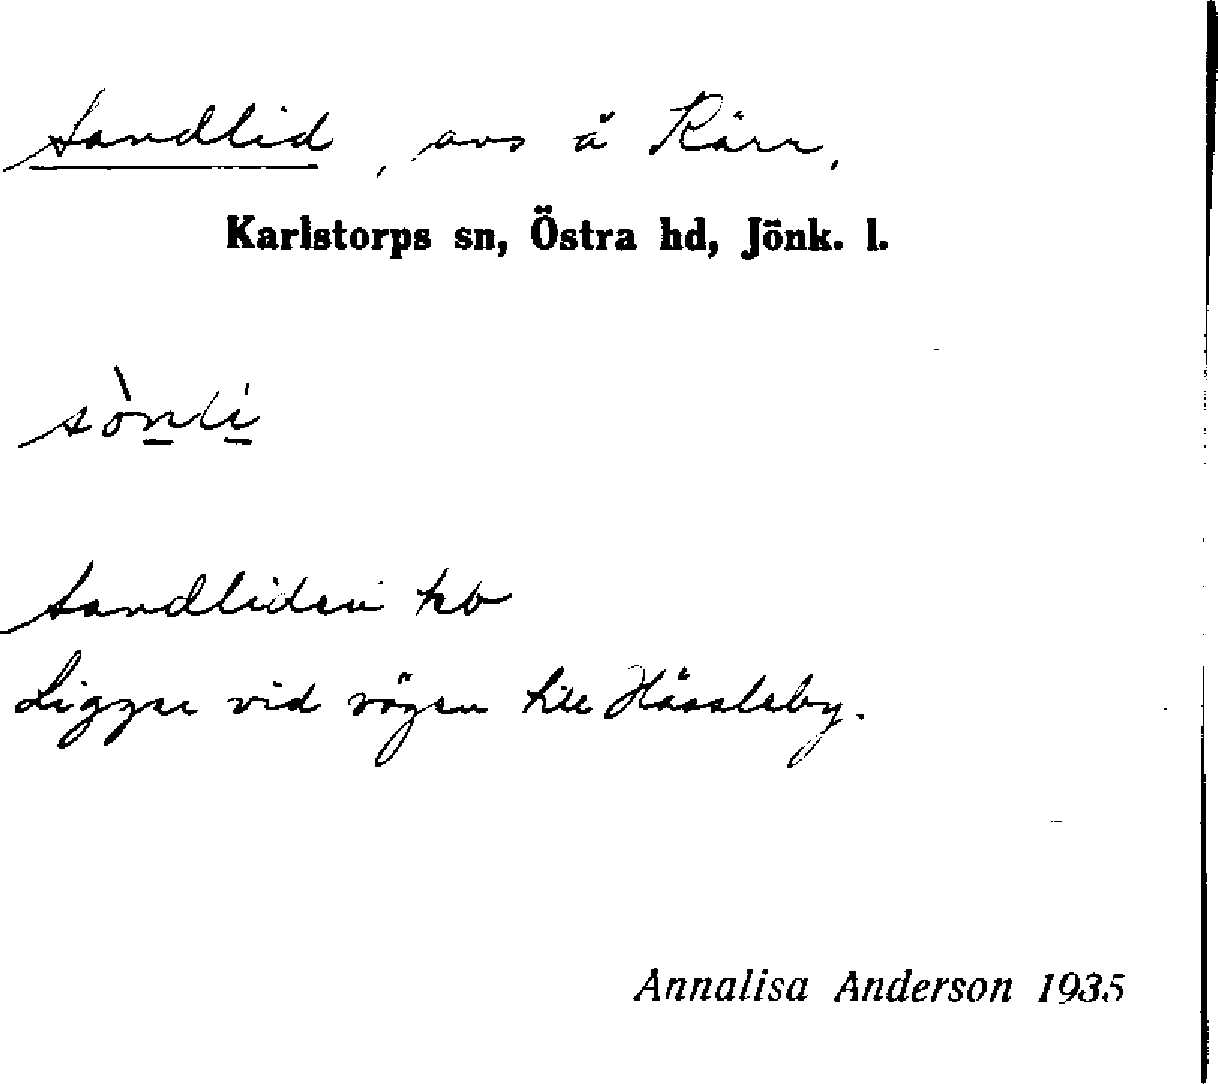 Sandlid, avs å Kärr,
Karlstorps sn, Östra hd, Jönk. l.
sònli
Sandliden kb
Ligger vid vägen till Hässleby.
Annalisa Anderson 1935